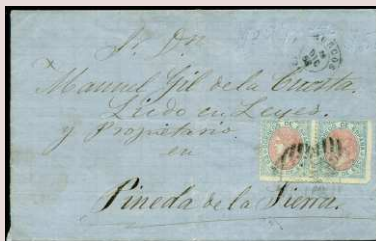 Sr. Dn.
Manuel Gil de la Cuesta.
Lcdo en Leyes.
y Propietario.
en
Pineda de la Sierra.